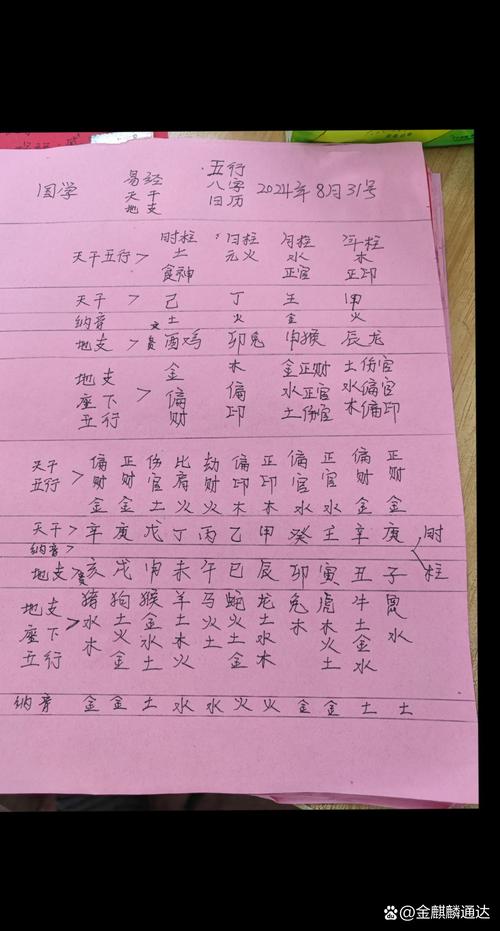 国学 易经 天干 地支 五行 八字 日历 2024年8月31号
时柱 日柱 月柱 年柱
天干五行> 土 元火 水 木
食神 正官 正印
天干 > 己 丁 壬 甲
纳音 土 火 金 火
地支 > 酉鸡 卯兔 申猴 辰龙
地支 金 木 金正财 土伤官
座下 > 偏 偏 水正官 水偏官
五行 财 印 土伤官 木偏印
天干 偏 正 伤 比 劫 偏 正 偏 正 偏 正
五行> 财 财 官 肩 财 印 印 官 官 财 财
金 金 土 火 火 木 木 水 水 金 金
天干> 辛 庚 戊 丁 丙 乙 甲 癸 壬 辛 庚 时
纳音>
地支> 亥 戌 申 未 午 巳 辰 卯 寅 丑 子 柱
地支 猪 狗 猴 羊 马 蛇 龙 兔 虎 牛 鼠
座下> 水 土 金 土 火 火 土 木 木 土 水
五行 木 火 水 木 土 土 水 火 金
金 土 火 金 木 土 水
纳音 金 金 土 水 水 火 火 金 金 土 土
金麒麟通达